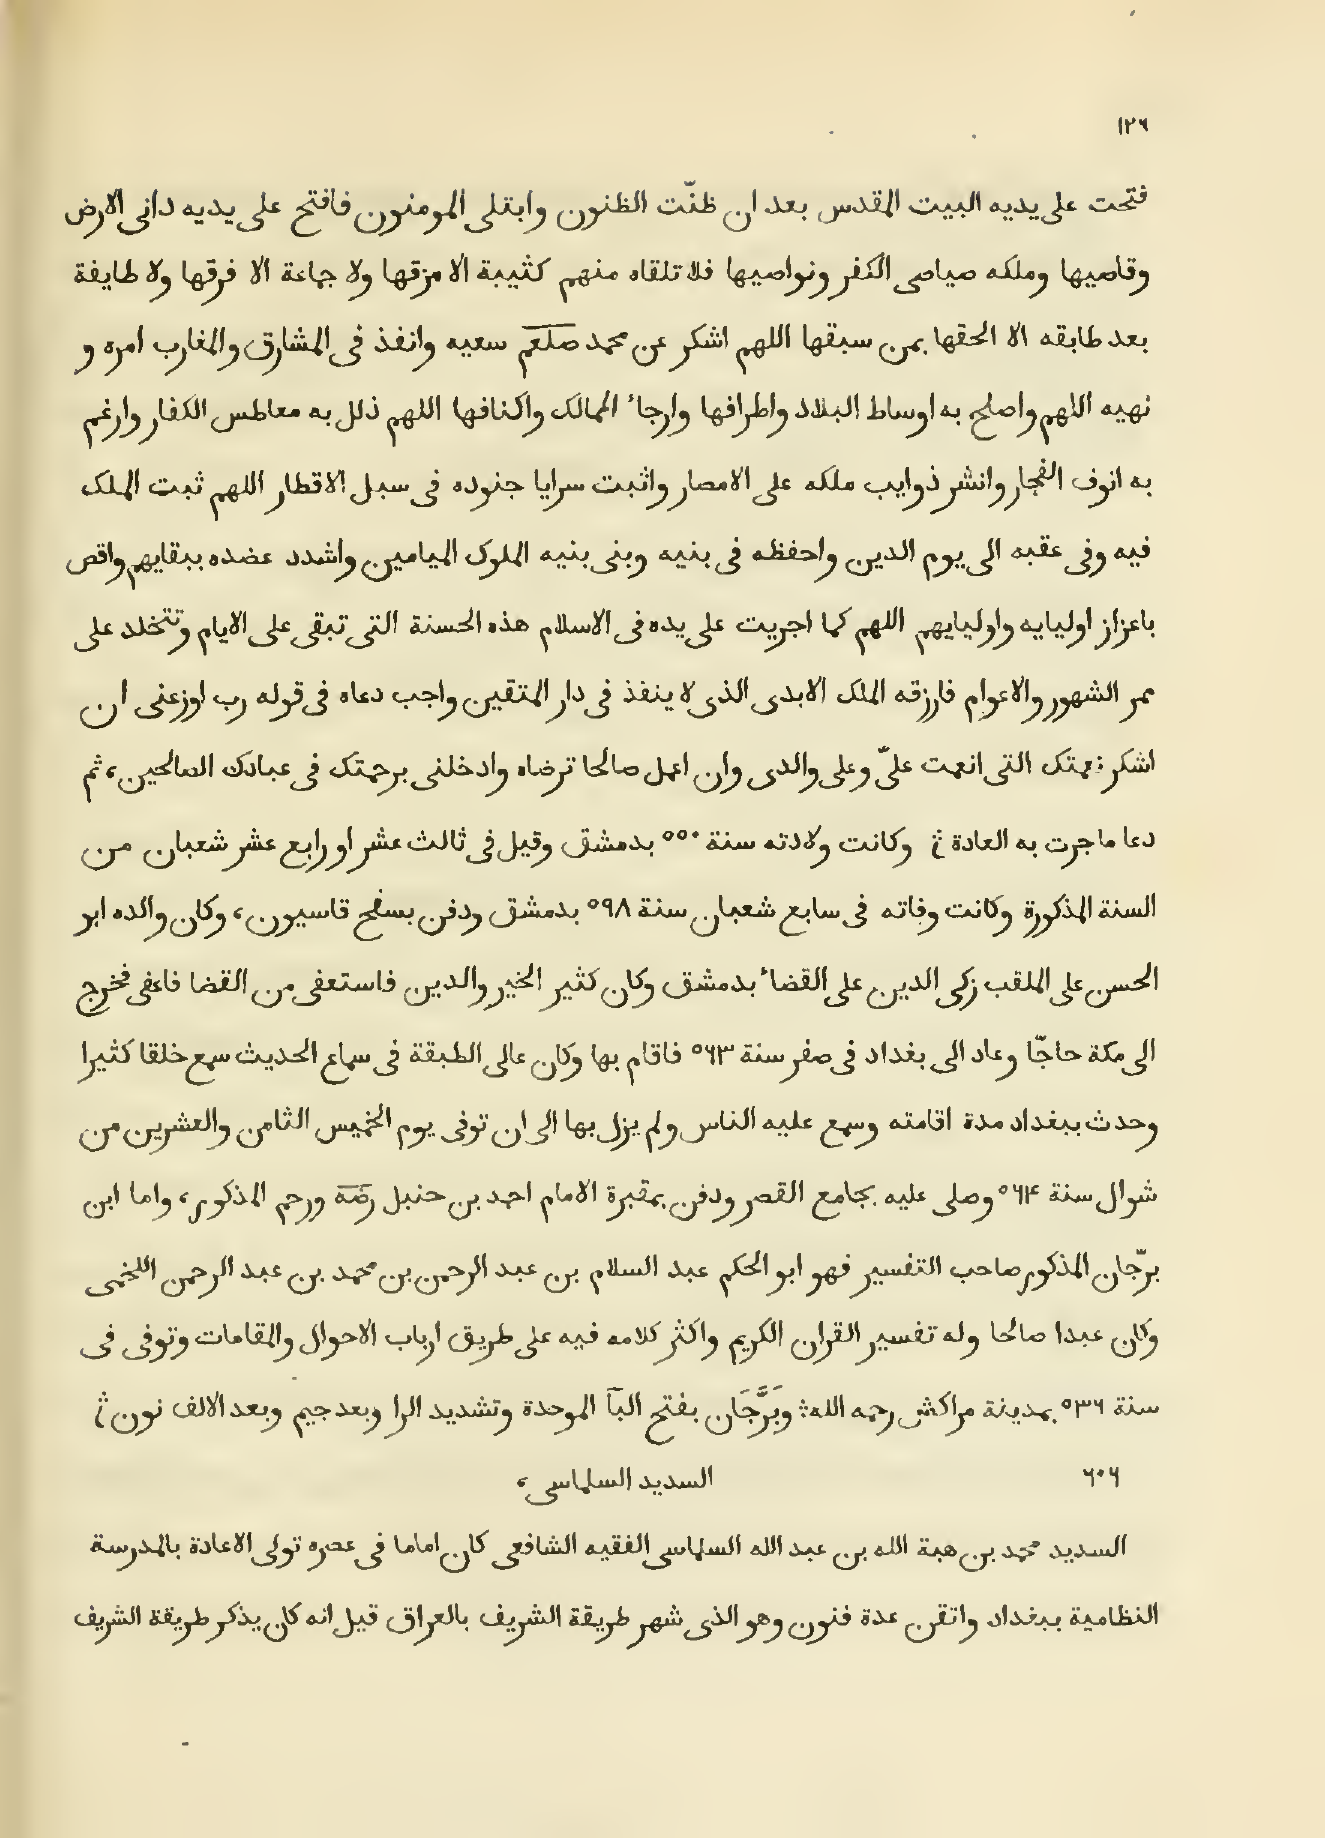 ١٢٦
فتحت على يديه البيت المقدس بعد ان ظنّت الظنون وابتلى المومنون فافتح على يديه دانى الارض
وقاصيها وملكه صياصى الكفر ونواصيها فلا تلقاه منهم كثيبة الا مزقها ولا جماعة الا فرقها ولا طايفة
بعد طابقه الا الحقها بمن سبقها اللهم اشكر عن محمد صلعم سعيه وانفذ فى المشارق والمغارب امره و
نهيه اللهم واصلح به اوساط البلاد واطرافها وارجاء الممالك واكنافها اللهم ذلل به معاطس الكفار وارغم
به انوف الفجار وانشر ذوايب ملكه على الامصار واثبت سرايا جنوده فى سبل الاقطار اللهم ثبت الملك
فيه وفى عقبه الى يوم الدين واحفظه فى بنيه وبنى بنيه الملوك الميامين واشدد عضده ببقايهم واقض
باعزاز اوليايه واوليايهم اللهم كما اجريت على يده فى الاسلام هذه الحسنة التى تبقى على الايام وتتخلد على
ممر الشهور والاعوام فارزقه الملك الابدى الذى لا ينفذ فى دار المتقين واجب دعاه فى قوله رب اوزعنى ان
اشكر نعمتك التى انعمت علىّ وعلى والدى وان اعمل صالحا ترضاه وادخلنى برحمتك فى عبادك الصالحين، ثم
دعا ما جرت به العادة ۞ وكانت ولادته سنة ٥٥٠ بدمشق وقيل فى ثالث عشر او رابع عشر شعبان من
السنة المذكورة وكانت وفاته فى سابع شعبان سنة ٥٩٨ بدمشق ودفن بسفح قاسيون، وكان والده ابو
الحسن على الملقب زكى الدين على القضاء بدمشق وكان كثير الخير والدين فاستعفى من القضا فاعفى فخرج
الى مكة حاجّا وعاد الى بغداد فى صفر سنة ٥٦٣ فاقام بها وكان عالى الطبقة فى سماع الحديث سمع خلقا كثيرا
وحدث ببغداد مدة اقامته وسمع عليه الناس ولم يزل بها الى ان توفى يوم الخميس الثامن والعشرين من
شوال سنة ٥٦٤ وصلى عليه بجامع القصر ودفن بمقبرة الامام احمد بن حنبل رضه ورحم المذكور، واما ابن
برّجان المذكور صاحب التفسير فهو ابو الحكم عبد السلام بن عبد الرحمن بن محمد بن عبد الرحمن اللخمى
وكان عبدا صالحا وله تفسير القران الكريم واكثر كلامه فيه على طريق ارباب الاحوال والمقامات وتوفى فى
سنة ٥٣٦ بمدينة مراكش رحمه الله؛ وبَرَّجَان بفتح البآ الموحدة وتشديد الرا وبعد جيم وبعد الالف نون ۞
٦٠٦ السديد السلماسى،
السديد محمد بن هبة الله بن عبد الله السلماسى الفقيه الشافعى كان اماما فى عصره تولى الاعادة بالمدرسة
النظامية ببغداد واتقن عدة فنون وهو الذى شهر طريقة الشريف بالعراق قيل انه كان يذكر طريقة الشريف